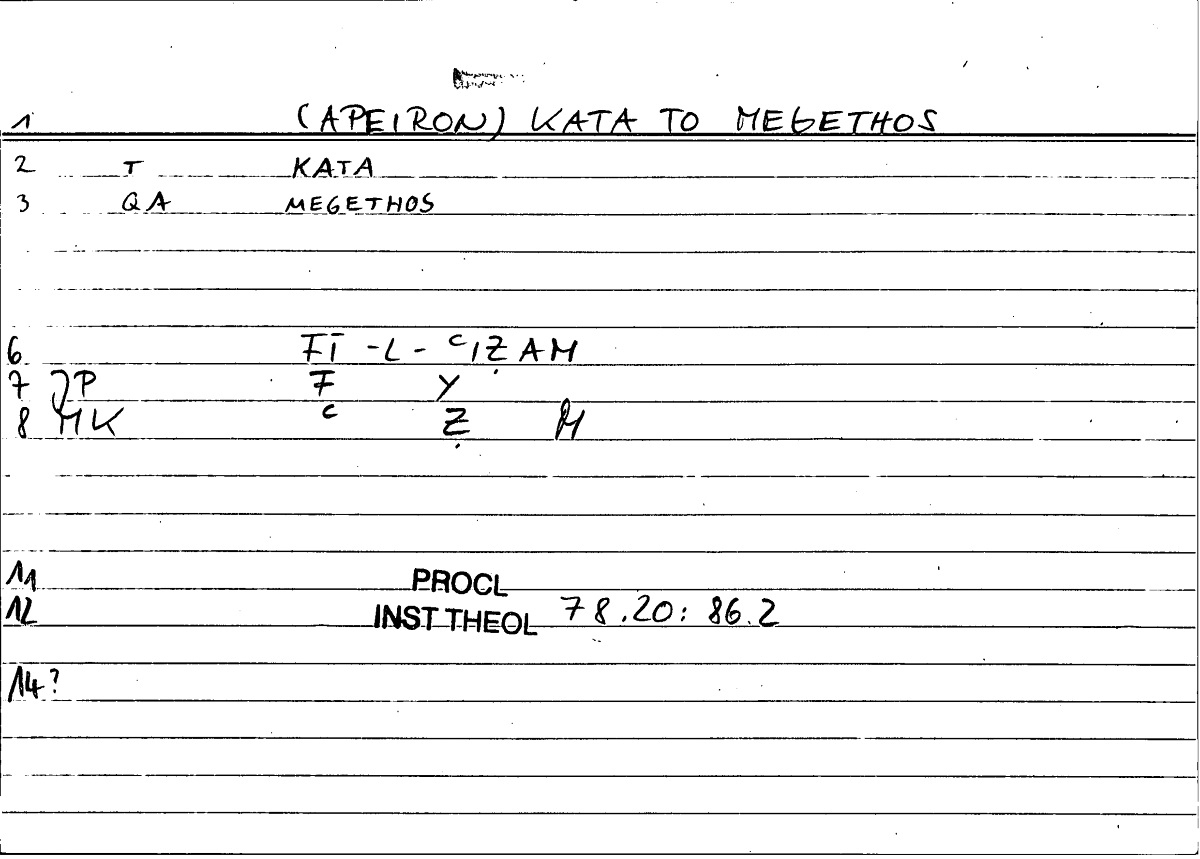 1 (APEIRON) KATA TO MEGETHOS
2 T KATA
3 QA MEGETHOS
6 FĪ -L- ʿIẒAM
7 JP F Y
8 MK ʿ Ẓ M
11 PROCL
12 INST THEOL 78.20: 86.2
14?